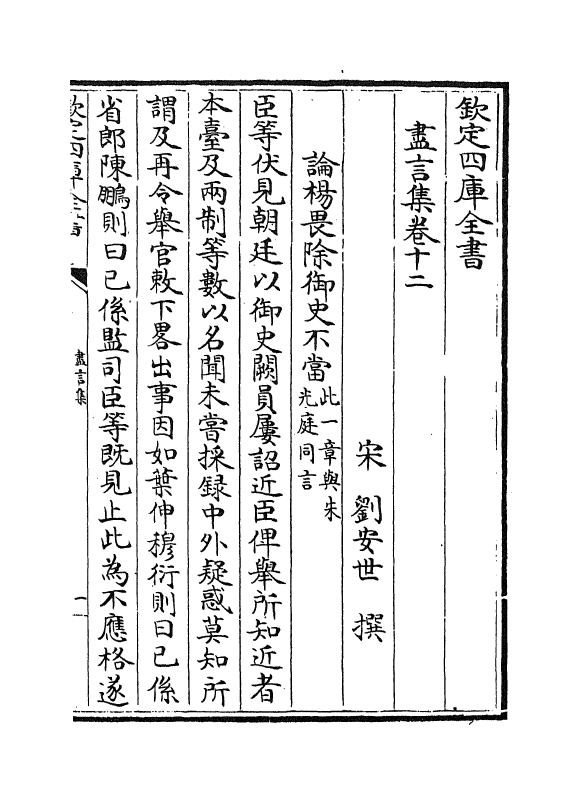 欽定四庫全書
盡言集卷十二
宋 劉安世 撰
論楊畏除御史不當此一章與朱
光庭同言
臣等伏見朝廷以御史闕員屢詔近臣俾舉所知近者
本臺及兩制等數以名聞未嘗採録中外疑惑莫知所
謂及再令舉官敕下畧出事因如葉伸穆衍則曰已係
省郎陳鵬則曰已係監司臣等既見止此為不應格遂
欽定四庫全書
盡言集
一